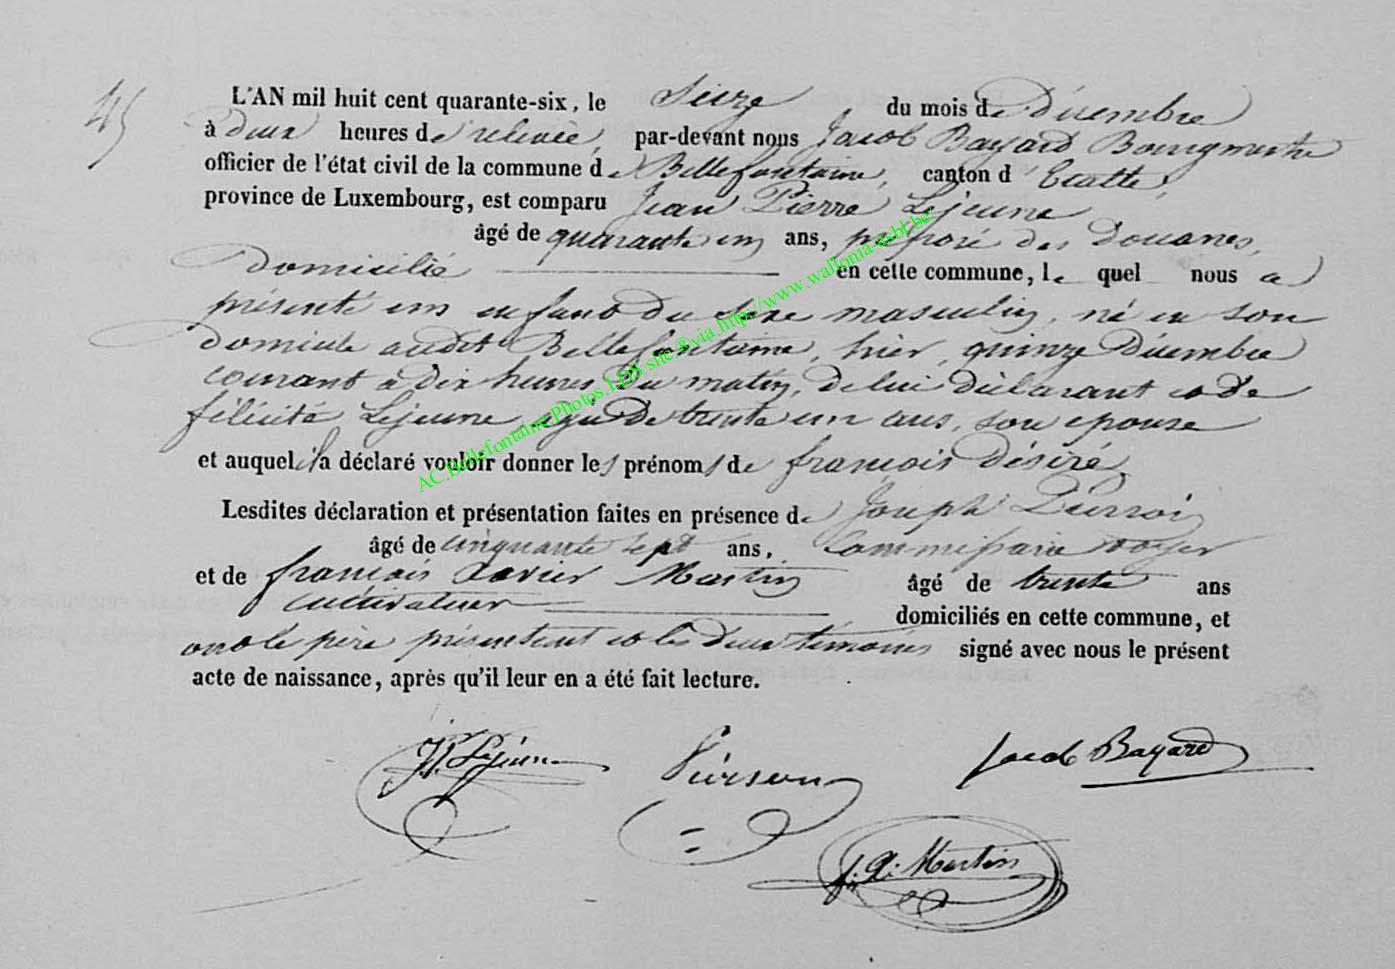 45
L'AN mil huit cent quarante-six, le Seize du mois de Décembre
à deux heures de relevée, par-devant nous Jacob Bayard Bourgmestre
officier de l'état civil de la commune de Bellefontaine, canton d'Etalle,
province de Luxembourg, est comparu Jean Pierre Lejeune
âgé de quarante un ans, préposé des Douanes,
domicilié en cette commune, le quel nous a
présenté un enfant du sexe masculin, né en son
domicile audit Bellefontaine, hier, quinze Décembre
courant à dix heures du matin, de lui déclarant et de
félicité Lejeune, agée de trente un ans, son épouse
et auquel il a déclaré vouloir donner les prénoms de françois Désiré
Lesdites déclaration et présentation faites en présence de Joseph
âgé de cinquante sept ans, Commissaire voyer
et de françois Xavier Martin âgé de trente ans
cultivateur domiciliés en cette commune, et
ont le père présentant et les deux témoins signé avec nous le présent
acte de naissance, après qu'il leur en a été fait lecture.
JP. Lejeune Pierson Jacob Bayard
f. X. Martin
AC.Bellefontaine.Photos.LDS site®via http://www.wallonia-asbl.be/